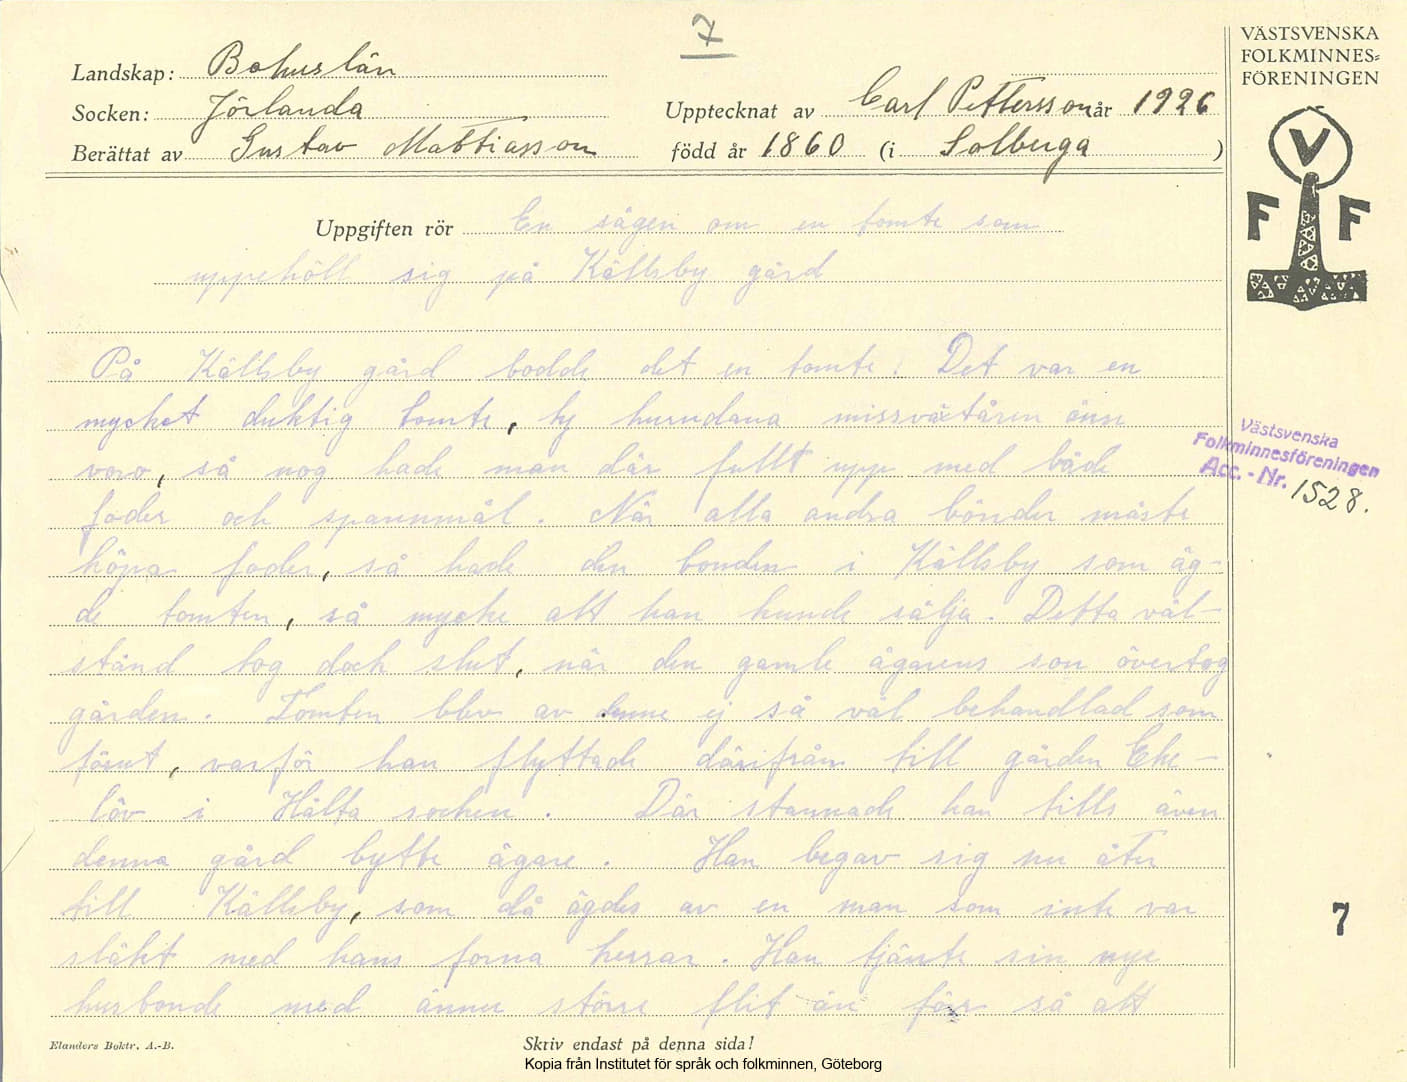 7
VÄSTSVENSKA
FOLKMINNES=
FÖRENINGEN
Landskap: Bohuslän
Socken: Jörlanda
Upptecknat av Carl Pettersson år 1926
Berättat av Gustav Mattiasson född år 1860 (i Solberga)
V
F F
Uppgiften rör En sägen om en tomte som
uppehöll sig på Källsby gård
På Källsby gård bodde det en tomte. Det var en
mycket duktig tomte, ty hurudana missväxtåren änn
voro, så nog hade man där fullt upp med både
foder och spannmål. När alla andra bönder måste
köpa foder, så hade den bonden i Källsby som äg-
de tomten, så mycke att han kunde sälja. Detta väl-
stånd tog dock slut, när den gamle ägarens son övertog
gården. Tomten blev av denne ej så väl behandlad som
förut, varför han flyttade därifrån till gården Eke-
löv i Hålta socken. Där stannade han tills även
denna gård bytte ägare. Han begav sig nu åter
till Källsby, som då ägdes av en man som inte var
släkt med hans forna herrar. Han tjänte sin nye
husbonde med ännu större flit än förr så att
Västsvenska
Folkminnesföreningen
Acc.-Nr. 1528.
7
Elanders Boktr. A.-B.
Skriv endast på denna sida!
Kopia från Institutet för språk och folkminnen, Göteborg